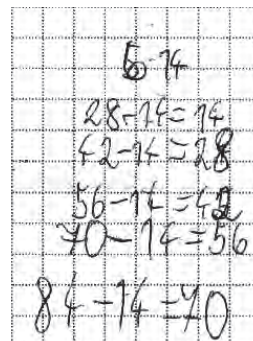 6·14
28-14=14
42-14=28
56-14=42
70-14=56
84-14=70